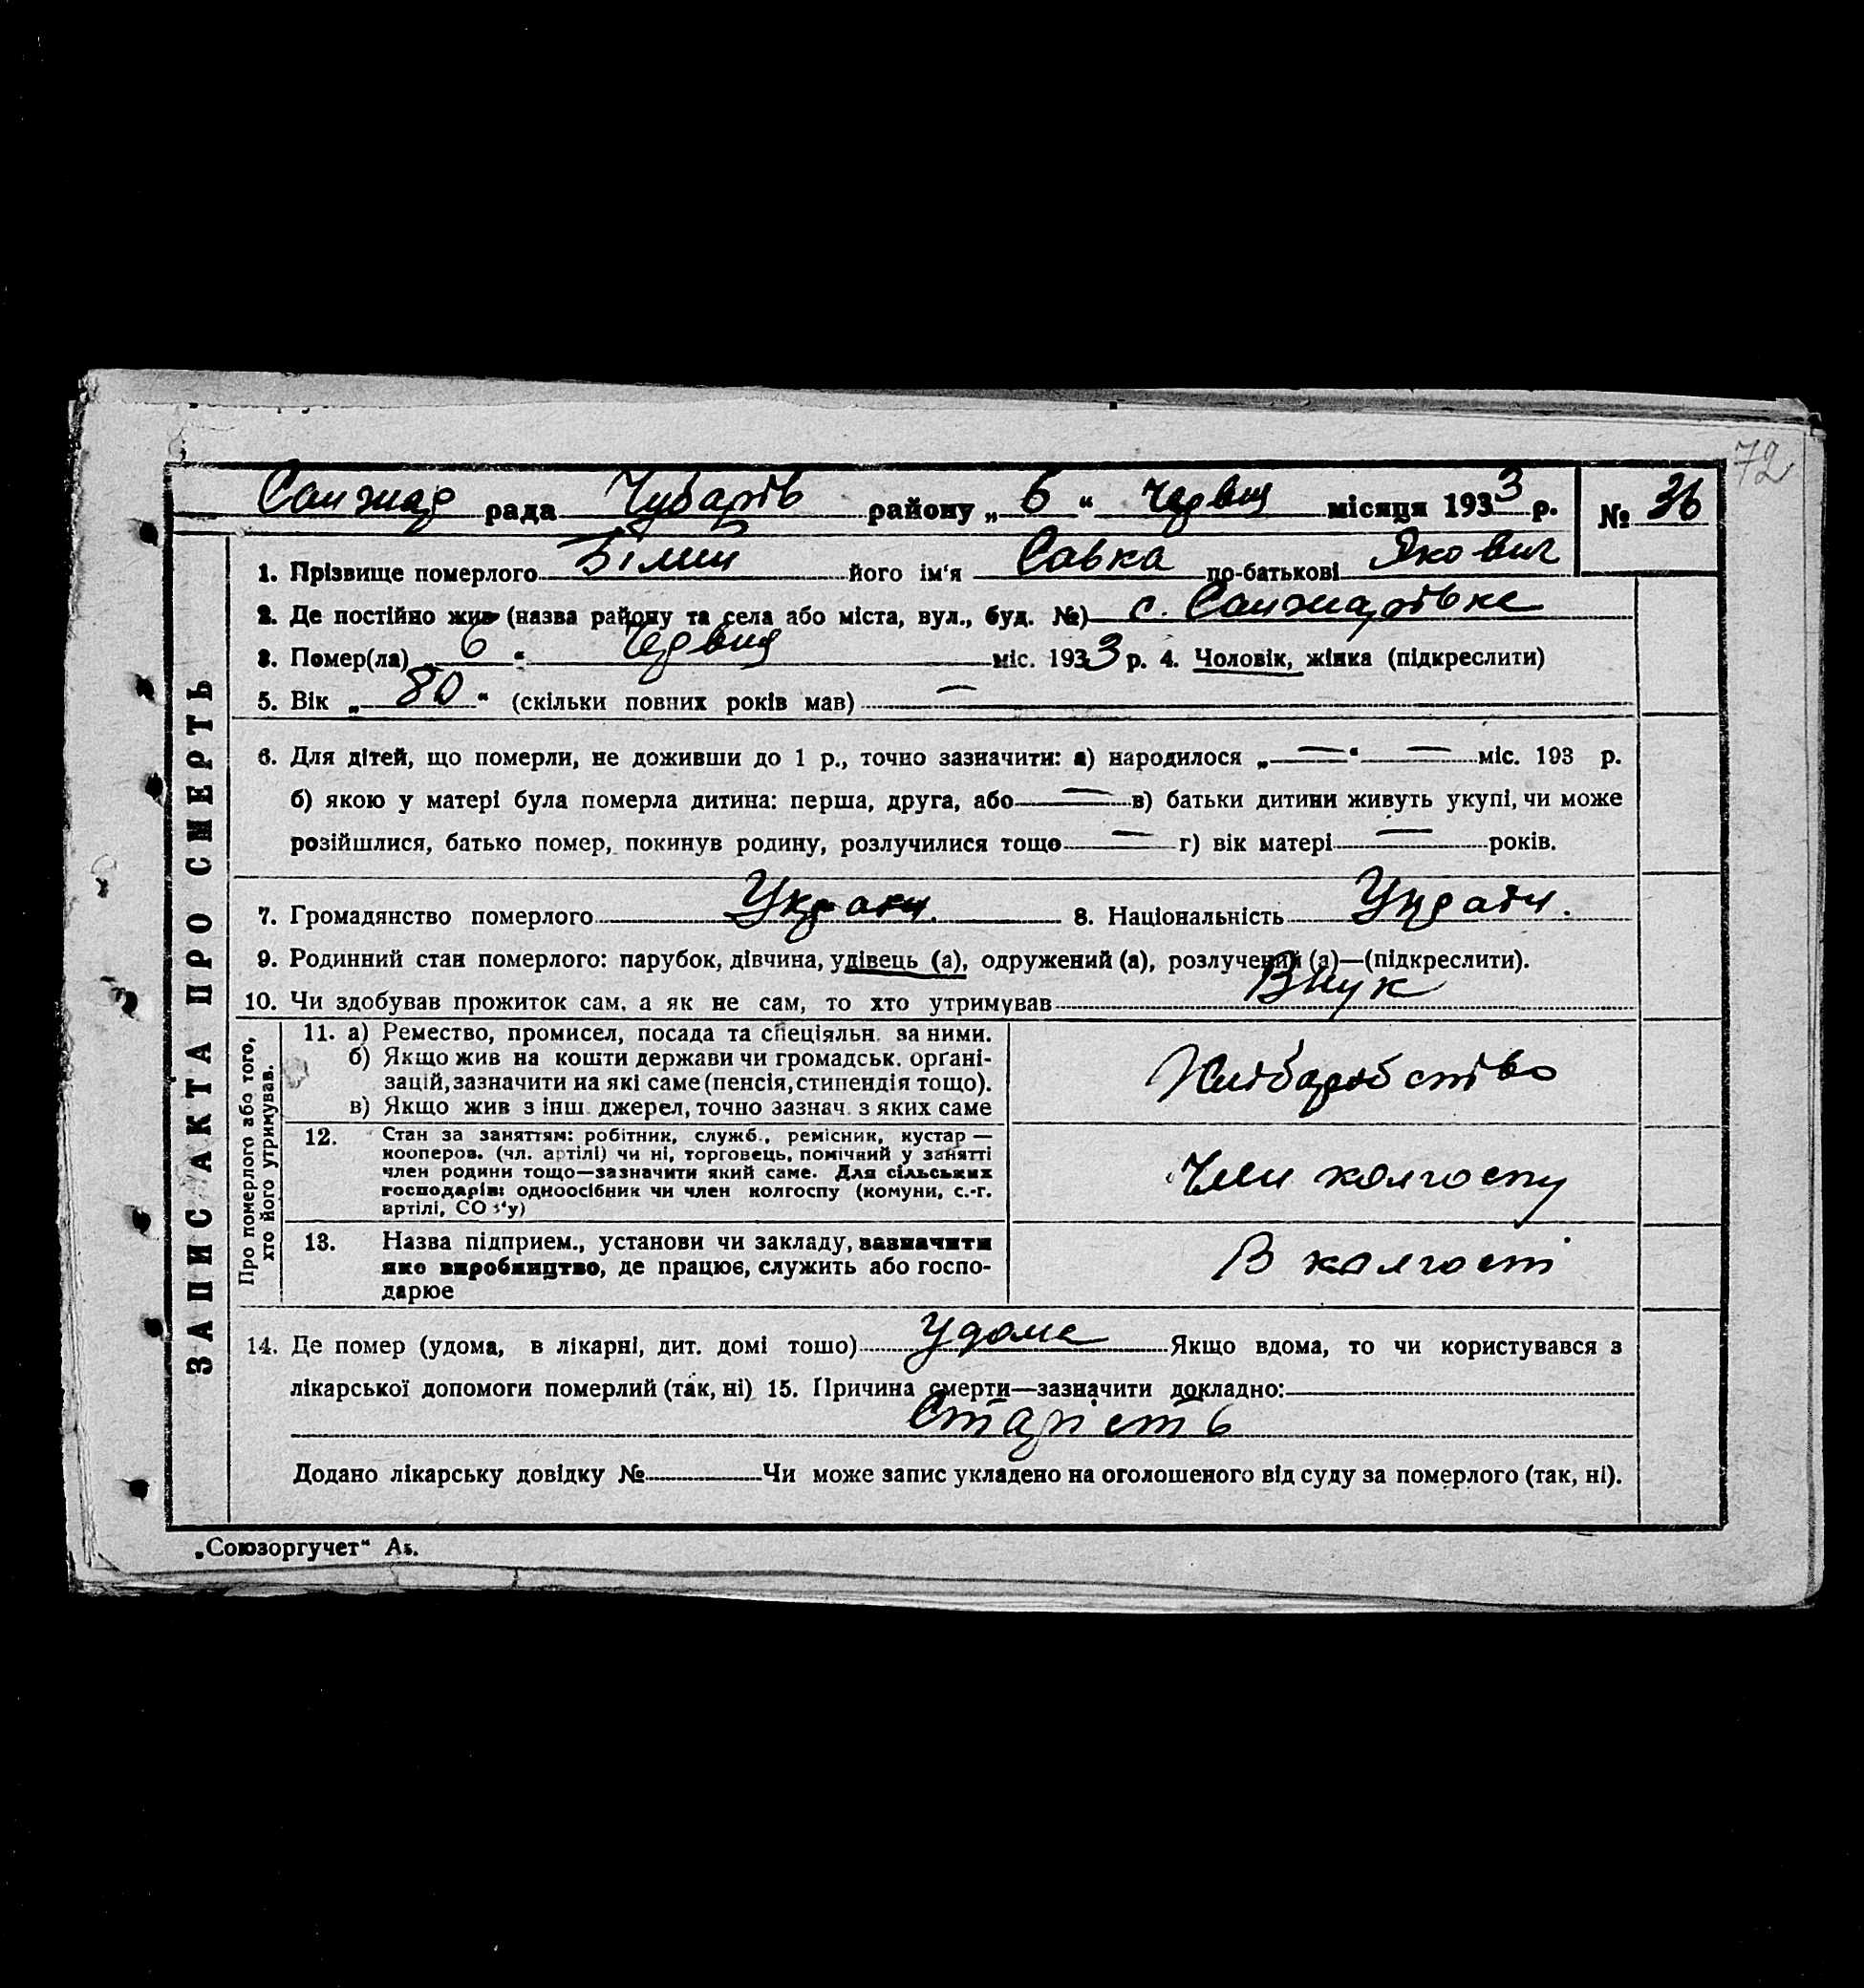 72
Санжар рада Чубарів району „ 6 “ червня місяця 1933 р. № 36
ЗАПИС АКТА ПРО СМЕРТЬ
1. Прізвище померлого Білий його ім'я Савка по-батькові Якович
2. Де постійно жив (назва району та села або міста, вул., буд. №) с. Санжарівка
3. Помер(ла) „ 6 “ червня міс. 1933 р. 4. Чоловік, жінка (підкреслити)
5. Вік „ 80 “ (скільки повних років мав) —
6. Для дітей, що померли, не доживши до 1 р., точно зазначити: а) народилося „ — “ — міс. 193 р.
б) якою у матері була померла дитина: перша, друга, або — в) батьки дитини живуть укупі, чи може
розійшлися, батько помер, покинув родину, розлучилися тощо — г) вік матері — років.
7. Громадянство померлого Україн. 8. Національність Україн.
9. Родинний стан померлого: парубок, дівчина, удівець (а), одружений (а), розлучений (а)—(підкреслити).
10. Чи здобував прожиток сам, а як не сам, то хто утримував Внук
Про померлого або того,
хто його утримував.
11. а) Ремество, промисел, посада та спеціяльн. за ними.
б) Якщо жив на кошти держави чи громадськ. орґані-
зацій, зазначити на які саме (пенсія, стипендія тощо).
в) Якщо жив з інш. джерел, точно зазнач. з яких саме
Хліборобство
12. Стан за заняттям: робітник, служб., ремісник, кустар —
кооперов. (чл. артілі) чи ні, торговець, помічний у занятті
член родини тощо—зазначити який саме. Для сільських
господарів: одноосібник чи член колгоспу (комуни, с.-г.
артілі, СОЗ'у)
Член колгоспу
13. Назва підприєм., установи чи закладу, зазначити
яке виробництво, де працює, служить або госпо-
дарює
В колгоспі
14. Де помер (удома, в лікарні, дит. домі тошо) Удома Якщо вдома, то чи користувався з
лікарської допомоги померлий (так, ні) 15. Причина смерти—зазначити докладно:
Старість
Додано лікарську довідку № Чи може запис укладено на оголошеного від суду за померлого (так, ні).
„Союзоргучет“